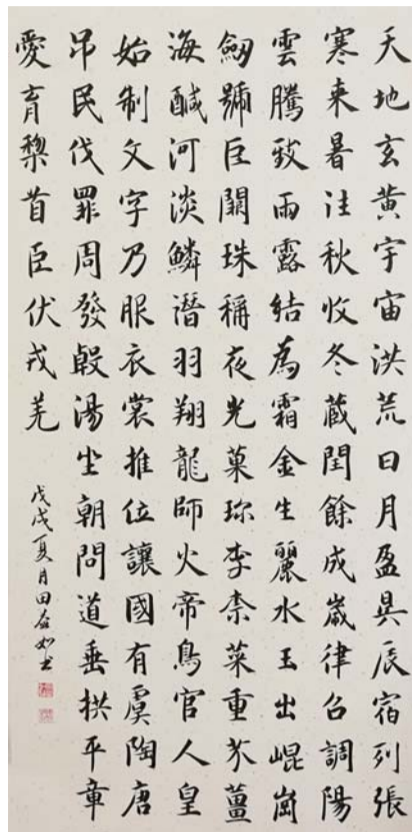 天地玄黄宇宙洪荒日月盈昃辰宿列張
寒来暑往秋收冬蔵閏餘成歲律召調陽
雲騰致雨露結為霜金生麗水玉出崐崗
劒號巨闕珠稱夜光菓珎李柰菜重芥薑
海醎河淡鱗潛羽翔龍師火帝鳥官人皇
始制文字乃服衣裳推位讓國有虞陶唐
吊民伐罪周發殷湯坐朝問道垂拱平章
愛育黎首臣伏戎羌
戊戌夏月田如書